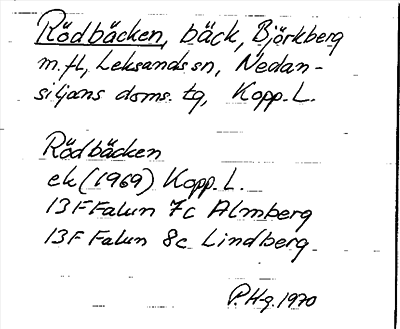 Rödbäcken, bäck, Björkberg
m.fl, Leksands sn, Nedan-
siljans doms. tg, Kopp. L.
Rödbäcken
ek (1969) Kopp. L.
13 F Falun 7c Almberg
13 F Falun 8c Lindberg
P.Hg. 1970